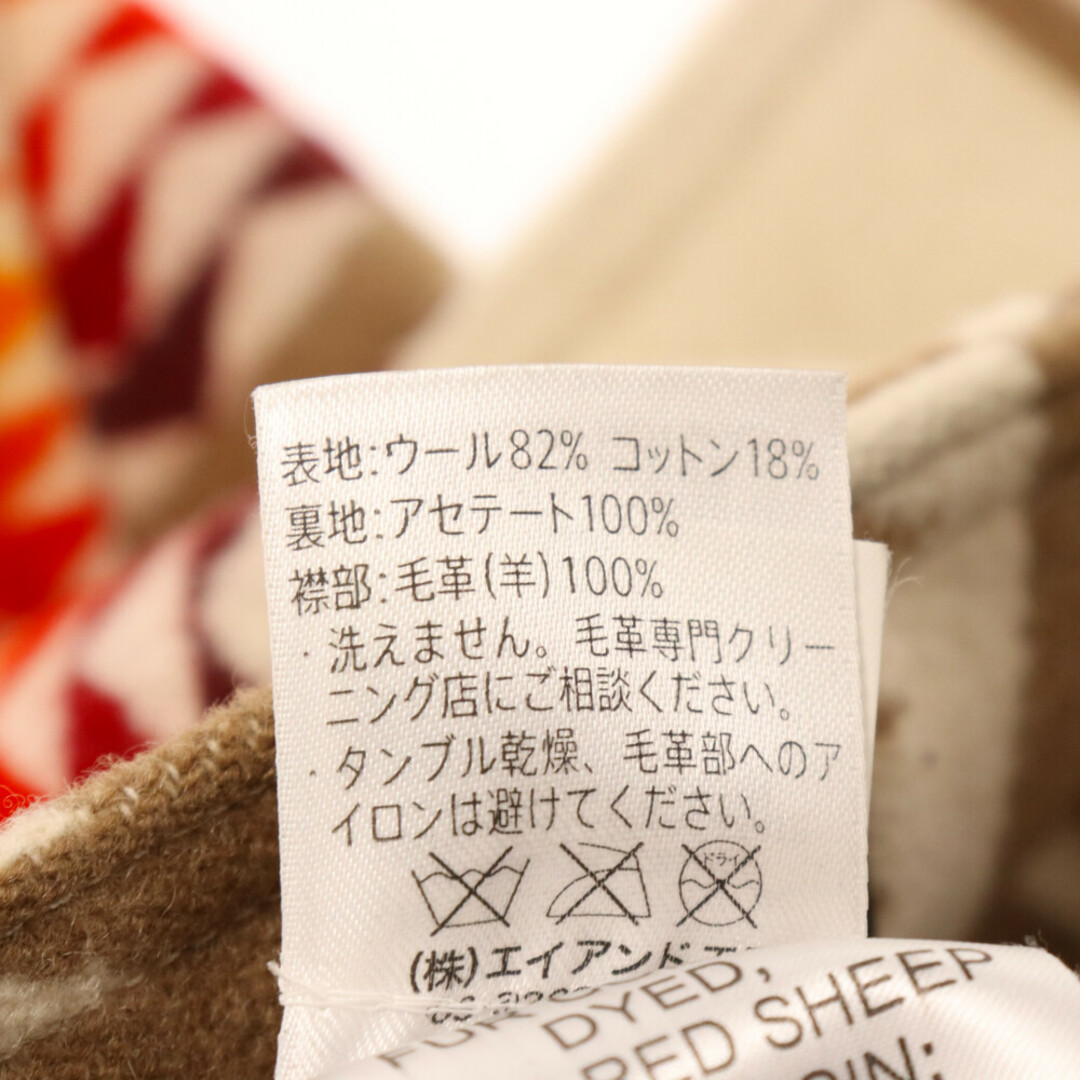 表地:ウール82% コットン18%
裏地:アセテート100%
襟部:毛革(羊)100%
・洗えません。毛革専門クリー
ニング店にご相談ください。
・タンブル乾燥、毛革部へのア
イロンは避けてください。
ドライ
(株)エイアンド
DYED,
SHEEP